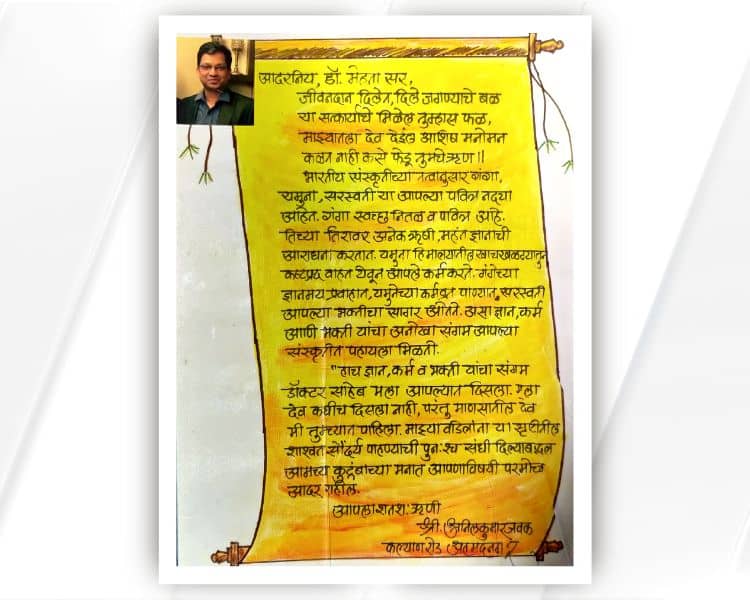 आदरनिय, डॉ. मेहता सर,
जीवनदान दिलेत, दिले जगण्याचे बळ
या सत्कार्याचे मिळेल तुम्हास फळ,
माझ्यातला देव देईल आशिष मनोमन
कळत नाही कसे फेडू तुमचे ऋण ॥
भारतीय संस्कृतीच्या तत्वानुसार गंगा,
यमुना, सरस्वती या आपल्या पवित्र नद्या
आहेत. गंगा स्वच्छ नितळ व पवित्र आहे.
तिच्या तिरावर अनेक ऋषी, महंत ज्ञानाची
आराधना करतात. यमुना हिमालयातील खाचखळग्यातुन
कष्टप्रद वाहत येवून आपले कर्म करते. गंगेच्या
ज्ञानमय प्रवाहात, यमुनेच्या कर्मव्रत पाण्यात, सरस्वती
आपल्या भक्तीचा सागर ओतते. असा ज्ञान, कर्म
आणी भक्ती यांचा अनोखा संगम आपल्या
संस्कृतीत पहायला मिळतो.
"हाच ज्ञान, कर्म व भक्ती यांचा संगम
डॉक्टर साहेब मला आपल्यात दिसला. मला
देव कधीच दिसला नाही, परंतु माणसातील देव
मी तुमच्यात पाहिला. माझ्या वडिलांना या सृष्टीतील
शाश्वत सौंदर्य पाहण्याची पुनःश्च संधी दिल्याबद्दल
आमच्या कुटुंबाच्या मनात आपणाविषयी परमोच्च
आदर राहील.
आपला शतशः ऋणी
श्री. अनिलकुमार जवक
कल्याण रोड